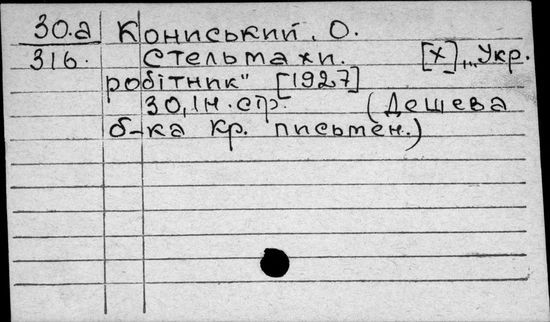 30.а Кониський. О.
316. Стельмахи. [Х] „Укр.
робітник" [1927]
30, Ін. стр. (Дешева
б-ка кр. письмен.)